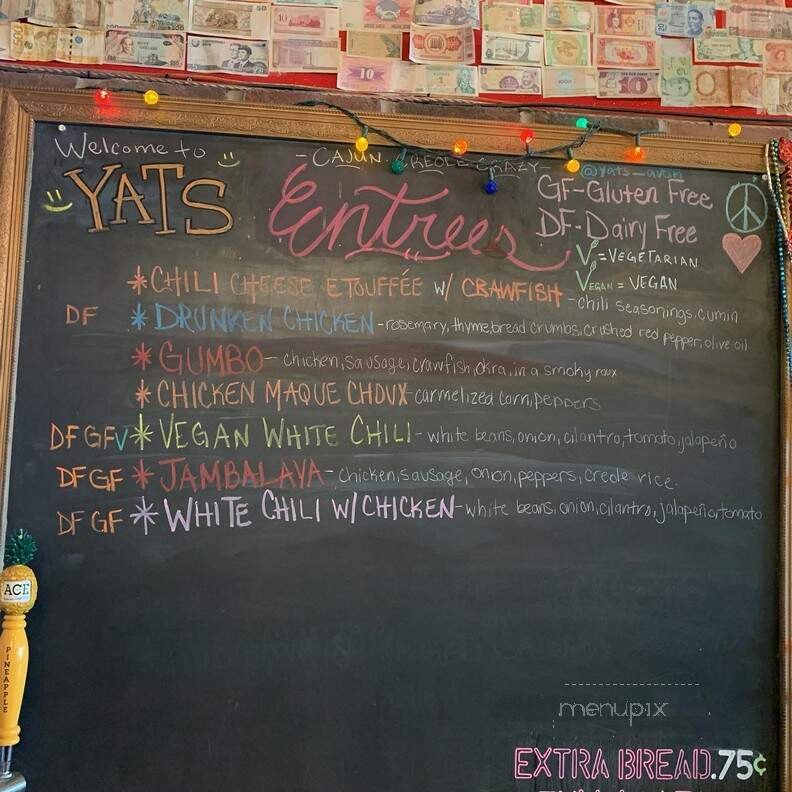 Welcome to
YATS
- CAJUN. CREOLE CRAZY -
@yats_avon
Entrees
GF-Gluten Free
DF-Dairy Free
V=VEGETARIAN
VEGAN = VEGAN
*CHILI CHEESE ETOUFFÉE W/ CRAWFISH - chili seasonings, cumin
DF *DRUNKEN CHICKEN - rosemary, thyme, bread crumbs, crushed red pepper, olive oil
*GUMBO - chicken, sausage, crawfish, okra, in a smoky roux
*CHICKEN MAQUE CHOUX - carmelized corn, peppers
DF GF V *VEGAN WHITE CHILI - white beans, onion, cilantro, tomato, jalapeño
DF GF *JAMBALAYA - chicken, sausage, onion, peppers, creole rice.
DF GF *WHITE CHILI W/CHICKEN - white beans, onion, cilantro, jalapeño, tomato
ACE
PINEAPPLE
menupix
EXTRA BREAD .75¢